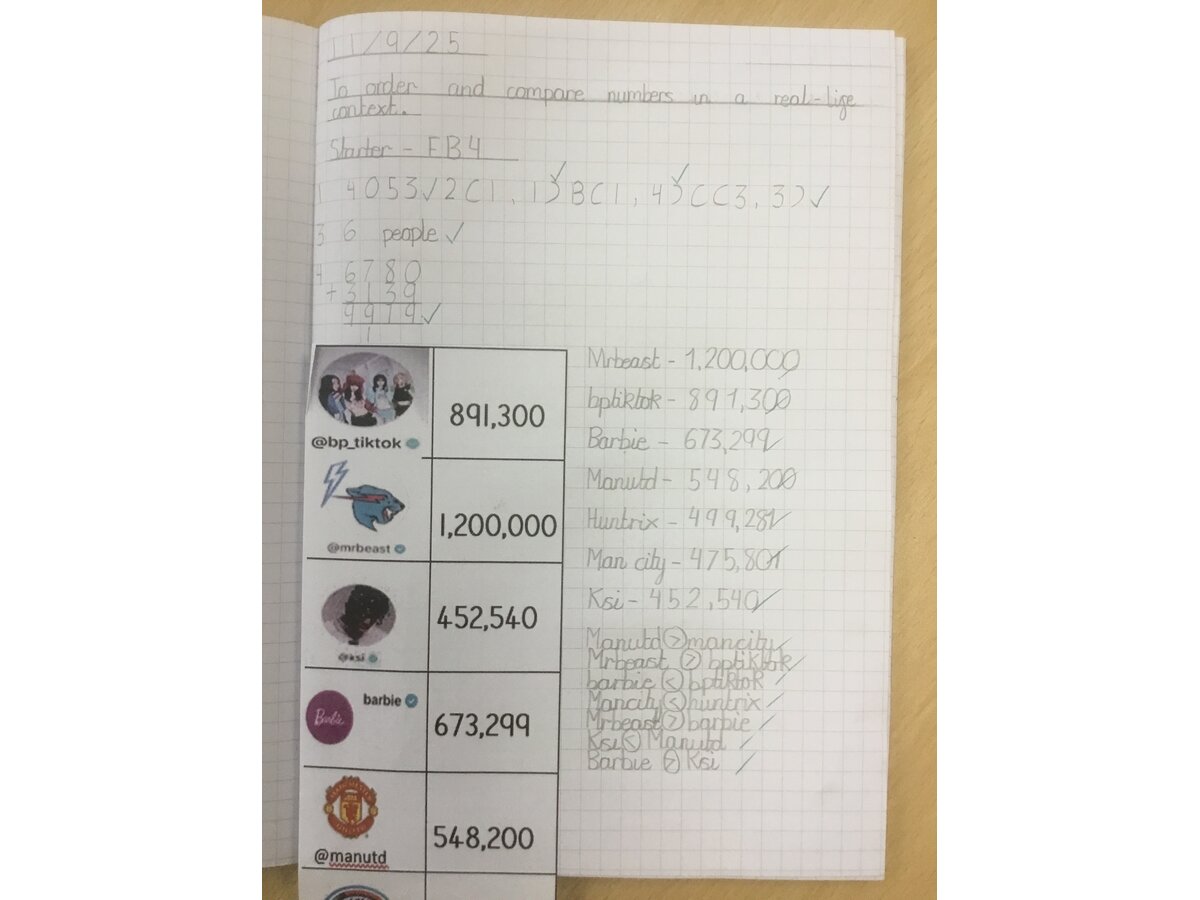 11/9/25
To order and compare numbers in a real-lige
context.
Starter - FB4
1 4053✓ 2 (1, 1)✓ B(1, 4)✓ C(3, 3)✓
3 6 people ✓
4 6780
+ 3139
9979 ✓
1
@bp_tiktok 891,300
@mrbeast 1,200,000
@ksi 452,540
barbie 673,299
Barbie
MANCHESTER
UNITED
@manutd 548,200
Mrbeast - 1,200,000
bptiktok - 891,300
Barbie - 673,299
Manutd - 548,200
Huntrix - 499,281
Man city - 475,801
Ksi - 452,540
Manutd > mancity
Mrbeast > bptiktok
barbie < bptiktok
Mancity < huntrix
Mrbeast > barbie
Ksi < Manutd
Barbie > Ksi